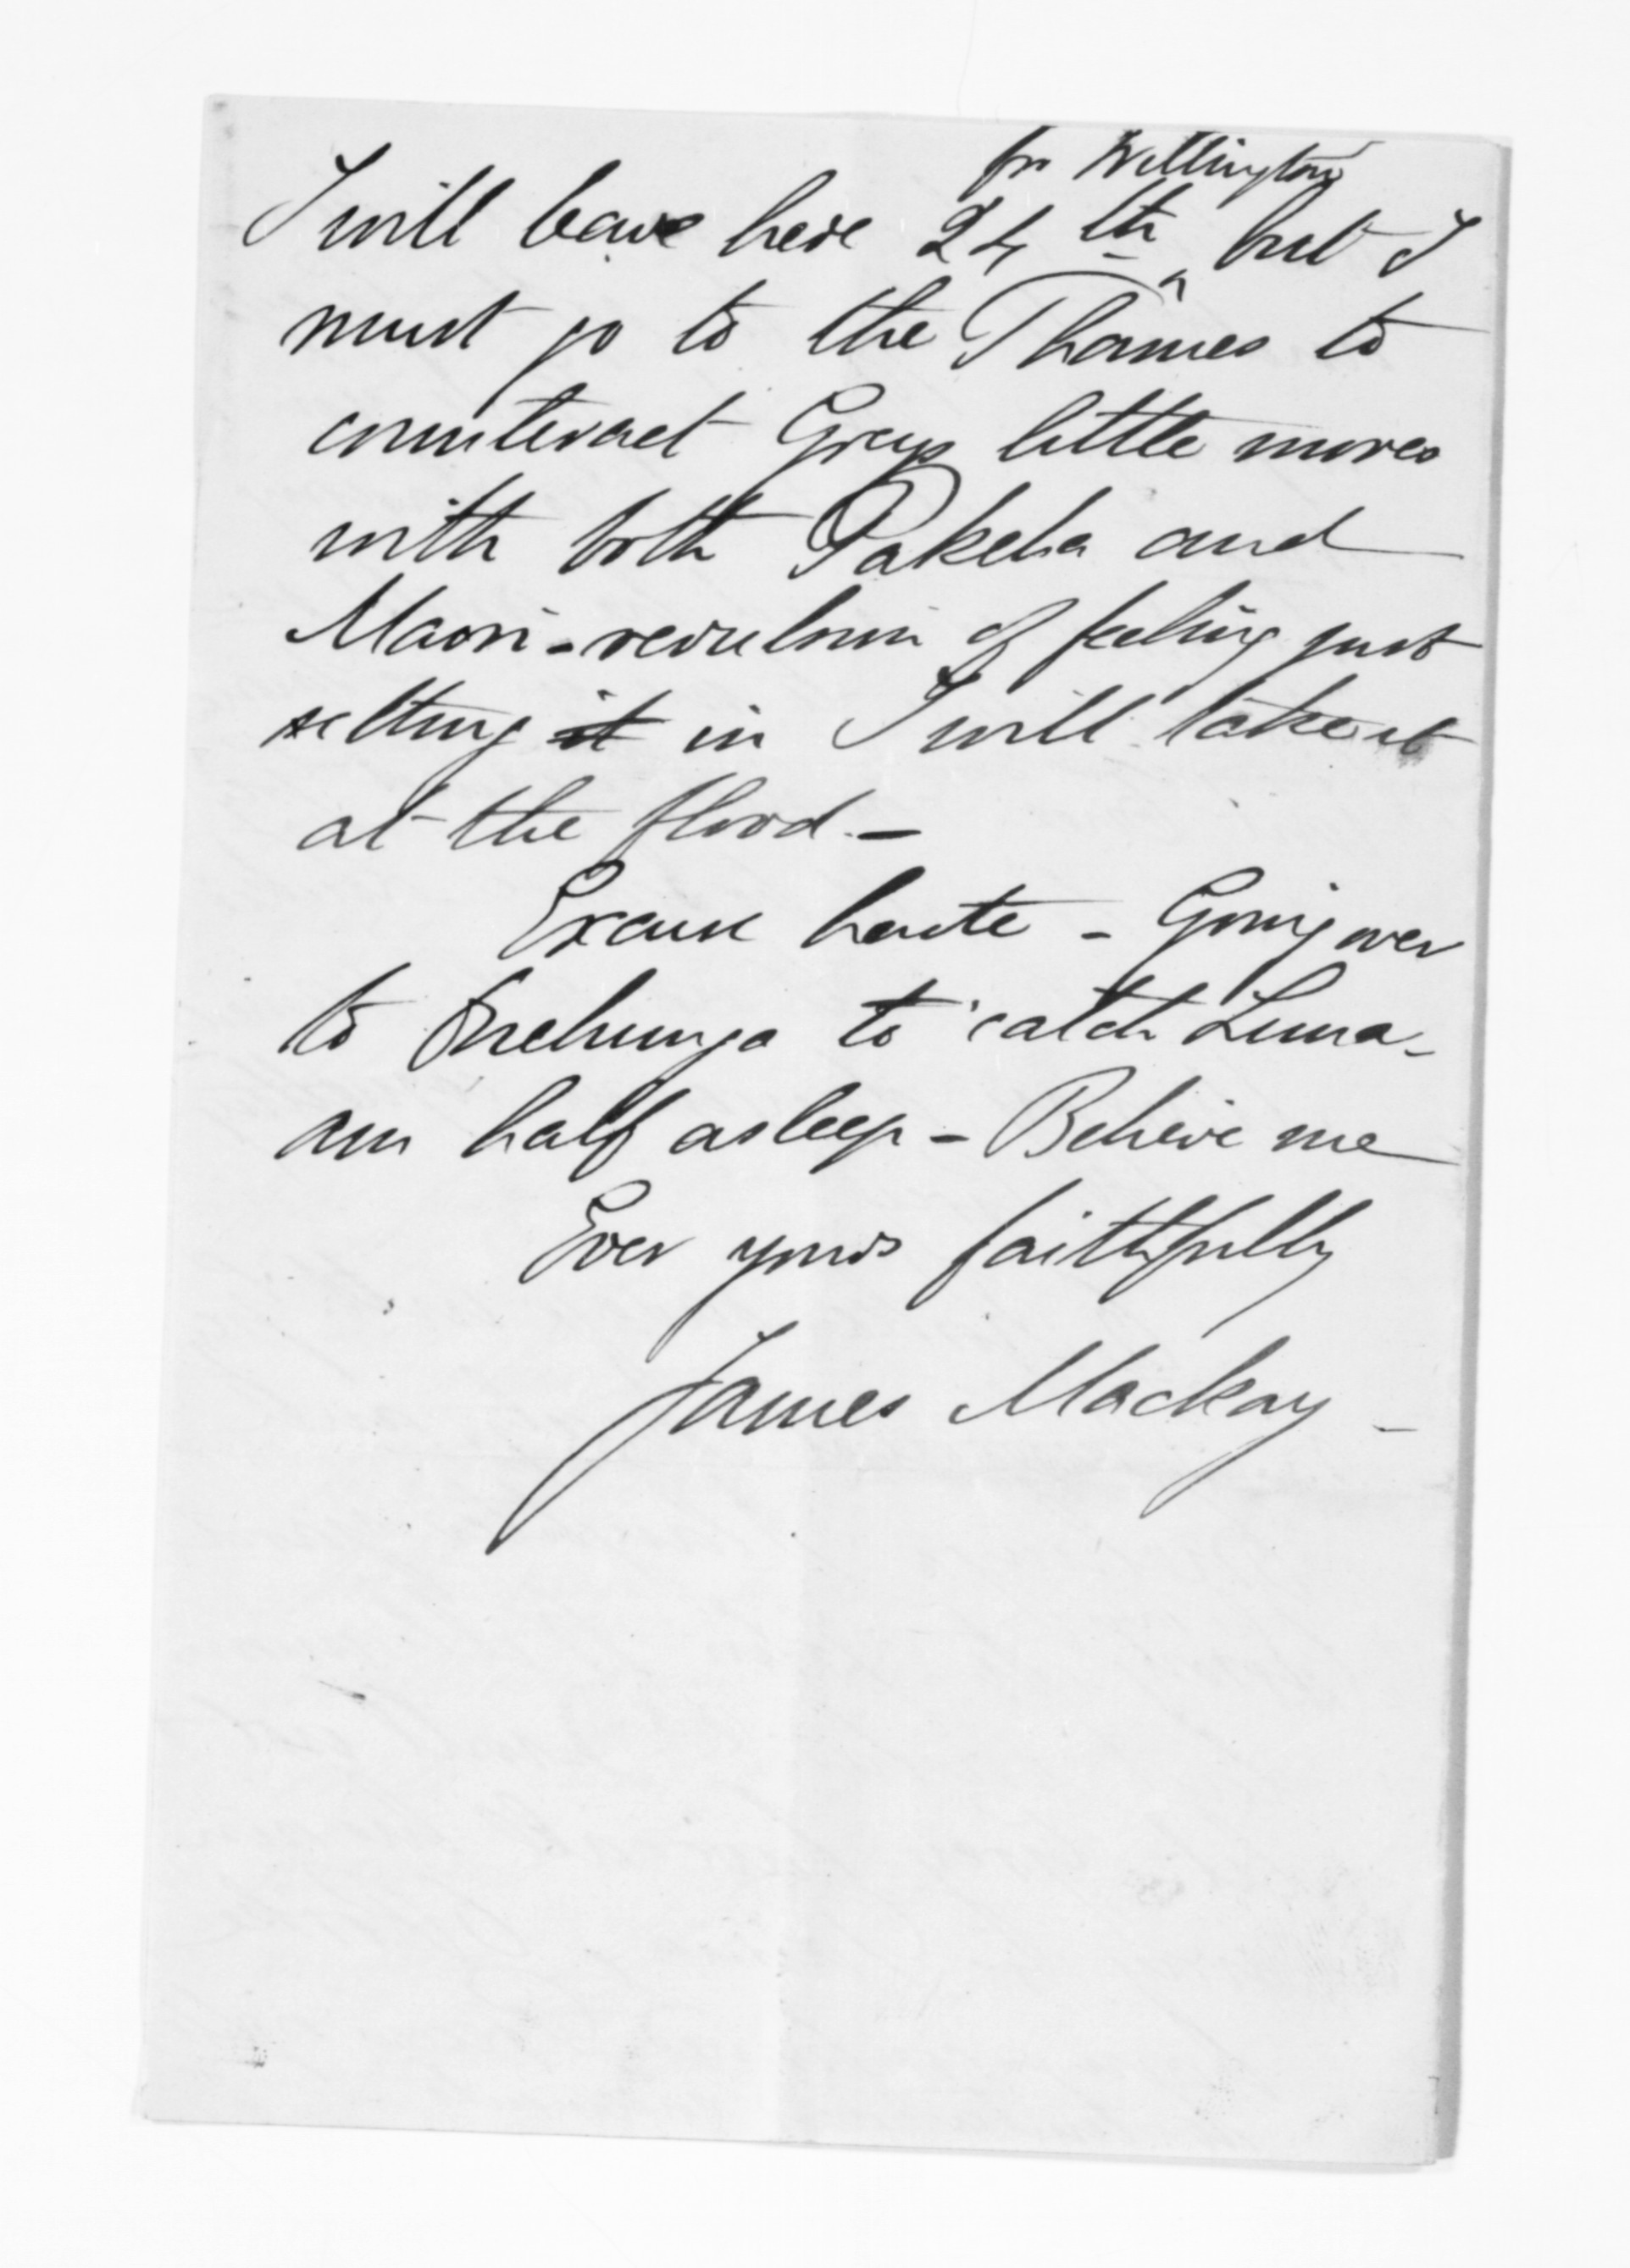 for Wellington
I will leave here 24th but I
must go to the Thames to
counteract Greys little moves
with both Pakeha and
Maori - revulsion of feeling just
setting it in I will take it
at the flood. -
Excuse haste - Going over
to Onehunga to catch Luna -
am half asleep - Believe me
Ever yours faithfully
James Mackay -